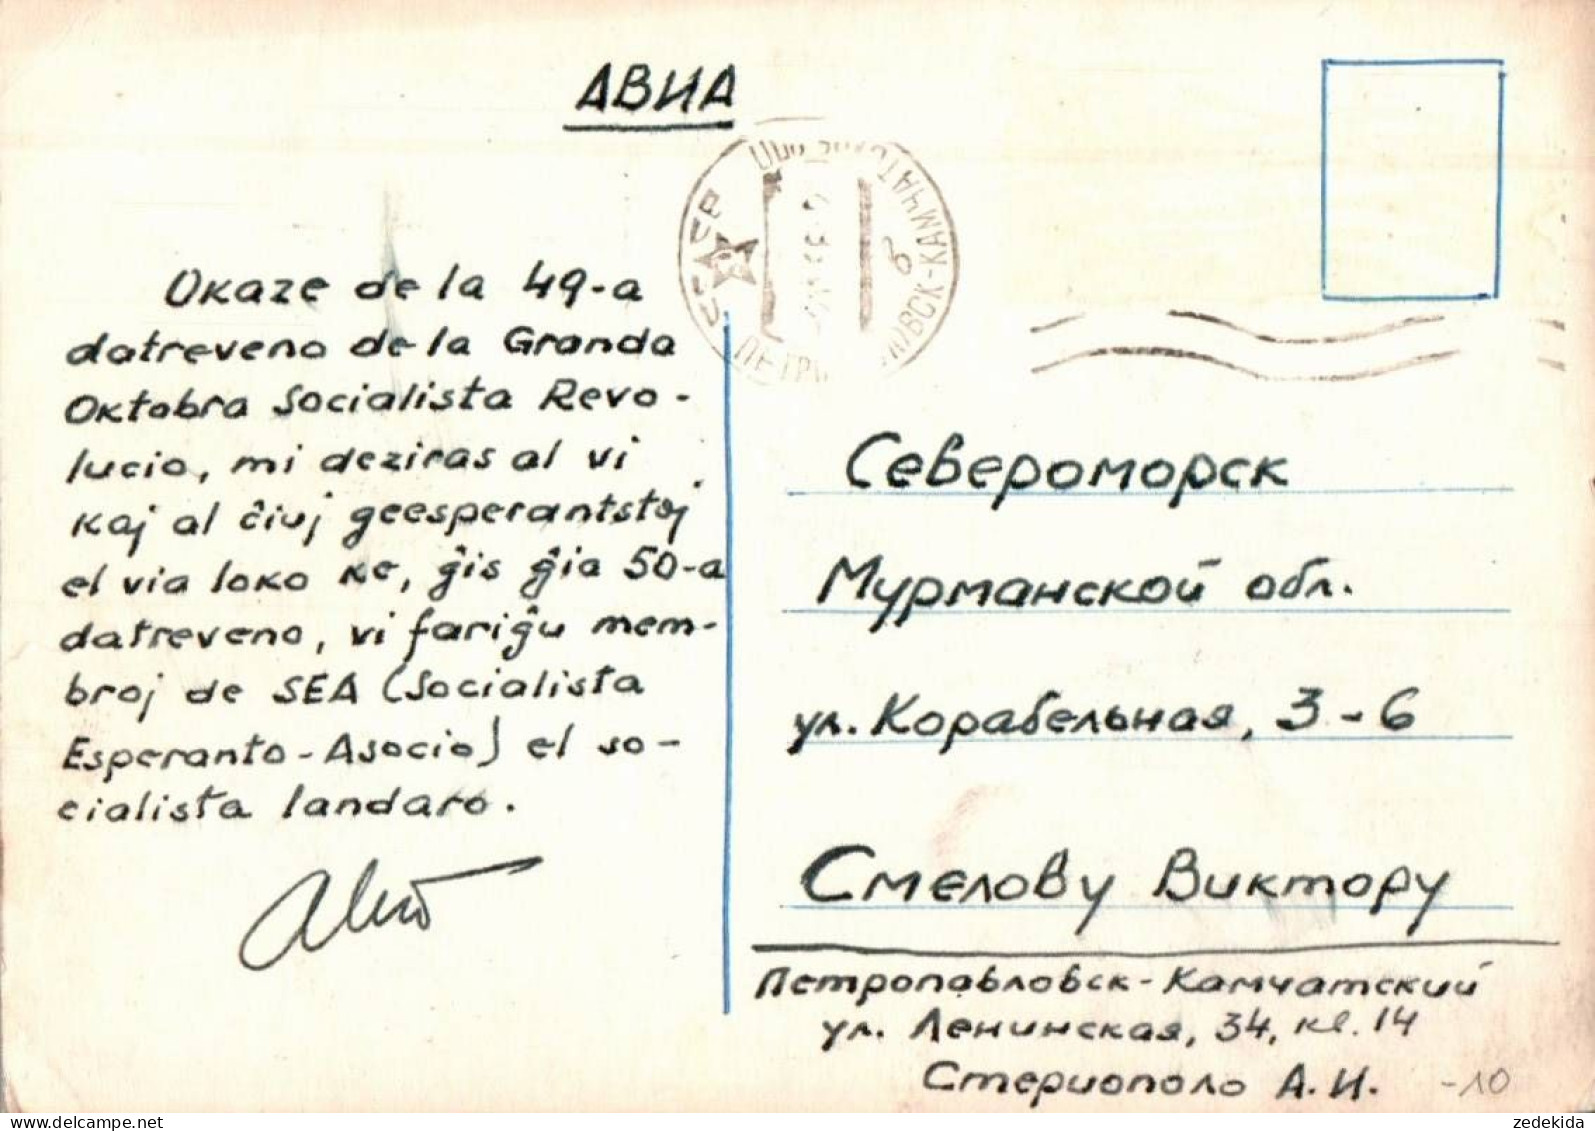 АВИА
СССР
ПЕТРОПАВЛОВСК-КАМЧАТСКИЙ
б
Okaze de la 49-a
datreveno de la Granda
Oktobra Socialista Revo-
lucio, mi deziras al vi
kaj al ĉiuj geesperantstoj
el via loko ke, ĝis ĝia 50-a
datreveno, vi fariĝu mem-
broj de SEA (Socialista
Esperanto-Asocio) el so-
cialista landaro.
Североморск
Мурманской обл.
ул. Корабельная, 3-6
Смелову Виктору
Петропавловск-Камчатский
ул. Ленинская, 34, кв. 14
Стериополо А.И.
-10
zedekida